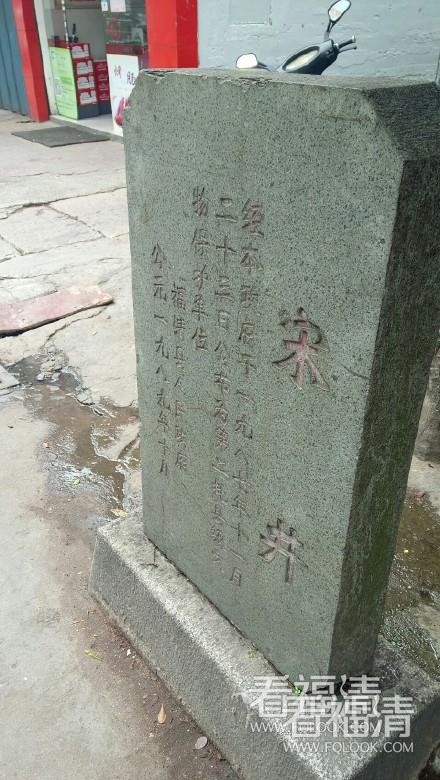 宋井
经本政府于一九八七年十一月
二十三日公布为第二批县级文
物保护单位
福清县人民政府
公元一九八九年十月
看福清
WWW.FQLOOK.COM
看福清
WWW.FQLOOK.COM